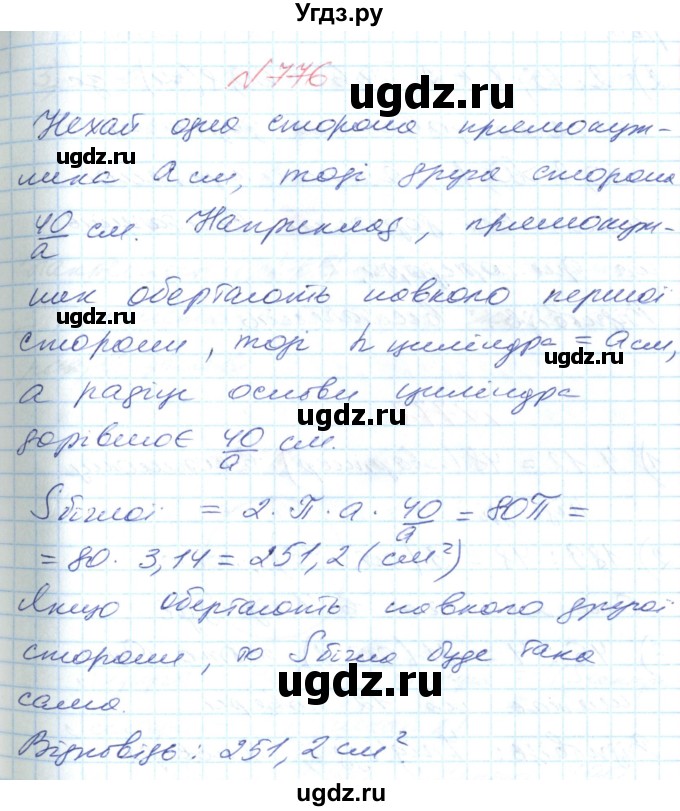 Угдз.ру
№776
ugdz.ru
Нехай одна сторона прямокут-
ugdz.ru
ника a см, тоді друга сторона
40/a см. Наприклад, прямокут-
ugdz.ru
ник обертають навколо першої
ugdz.ru
сторони, тоді h циліндра = a см,
ugdz.ru
а радіус основи циліндра
ugdz.ru
дорівнює 40/a см.
Sбічної = 2·π·a·40/a = 80π =
= 80·3,14 = 251,2 (см²)
Якщо обертають навколо другої
сторони, то Sбічна буде така
ugdz.ru
сама.
Відповідь: 251,2 см².
ugdz.ru